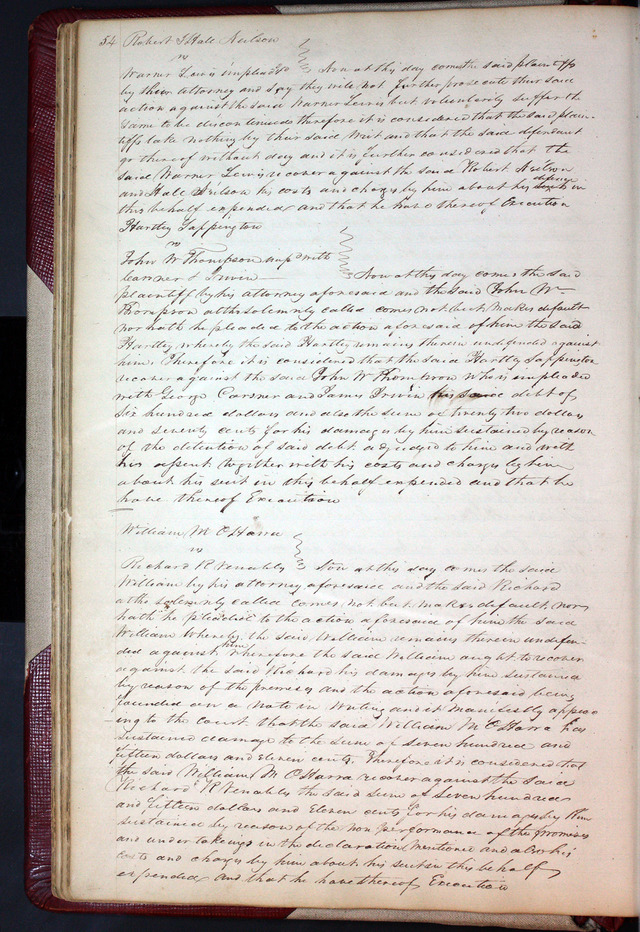 54 Robert & Hall Neilson
vs
Warner Lewis impleaded Now at this day comes the said plaintiffs
by their attorney and say they will not further prosecute their said
action against the said Warner Lewis but voluntarily suffer the
same to be discontinued therefore it is considered that the said plain-
tiffs take nothing by their said writ and that the said defendant
go thereof without day and it is further considered that the
said Warner Lewis recover against the said Robert Neilson
and Hall Neilson his costs and charges by him about his defense in
this behalf expended and that he have thereof Execution
Hartley Sappington
vs
John W Thompson imp<sup>d</sup> with
Carsner & Irwin Now at this day comes the said
plaintiff by his attorney aforesaid and the said John W
Thompson altho solemnly called comes not but makes default
nor hath he pleaded to the action aforesaid of him the said
Hartley whereby the said Hartley remains therein undefended against
him. Therefore it is considered that the said Hartley Sappington
recover against the said John W Thompson who is impleaded
with George Carsner and James Irwin his said debt of
Six hundred dollars and also the sum of twenty two dollars
and seventy cents for his damages by him sustained by reason
of the detention of said debt adjudged to him and with
his assent together with his costs and charges by him
about his suit in this behalf expended and that he
have thereof Execution
William M O'Harra
vs
Richard R Venables Now at this day comes the said
William by his attorney aforesaid and the said Richard
altho solemnly called comes not but makes default nor
hath he pleaded to the action aforesaid of him the said
William Whereby the said William remains therein undefen-
ded against him wherefore the said William aught to recover
against the said Richard his damages by him sustained
by reason of the premises and the action aforesaid being
founded on a Note in writing and it manifestly appear-
ing to the court that the said William M O'Harra has
sustained damage to the sum of Seven hundred and
fifteen dollars and Eleven cents. Therefore it is considered that
the said William M O'Harra recover against the said
Richard R Venables the said sum of Seven hundred
and fifteen dollars and Eleven cents for his damages by him
sustained by reason of the non performance of the promises
and undertakings in the declaration mentioned and also his
costs and charges by him about his suit in this behalf
expended and that he have thereof Execution